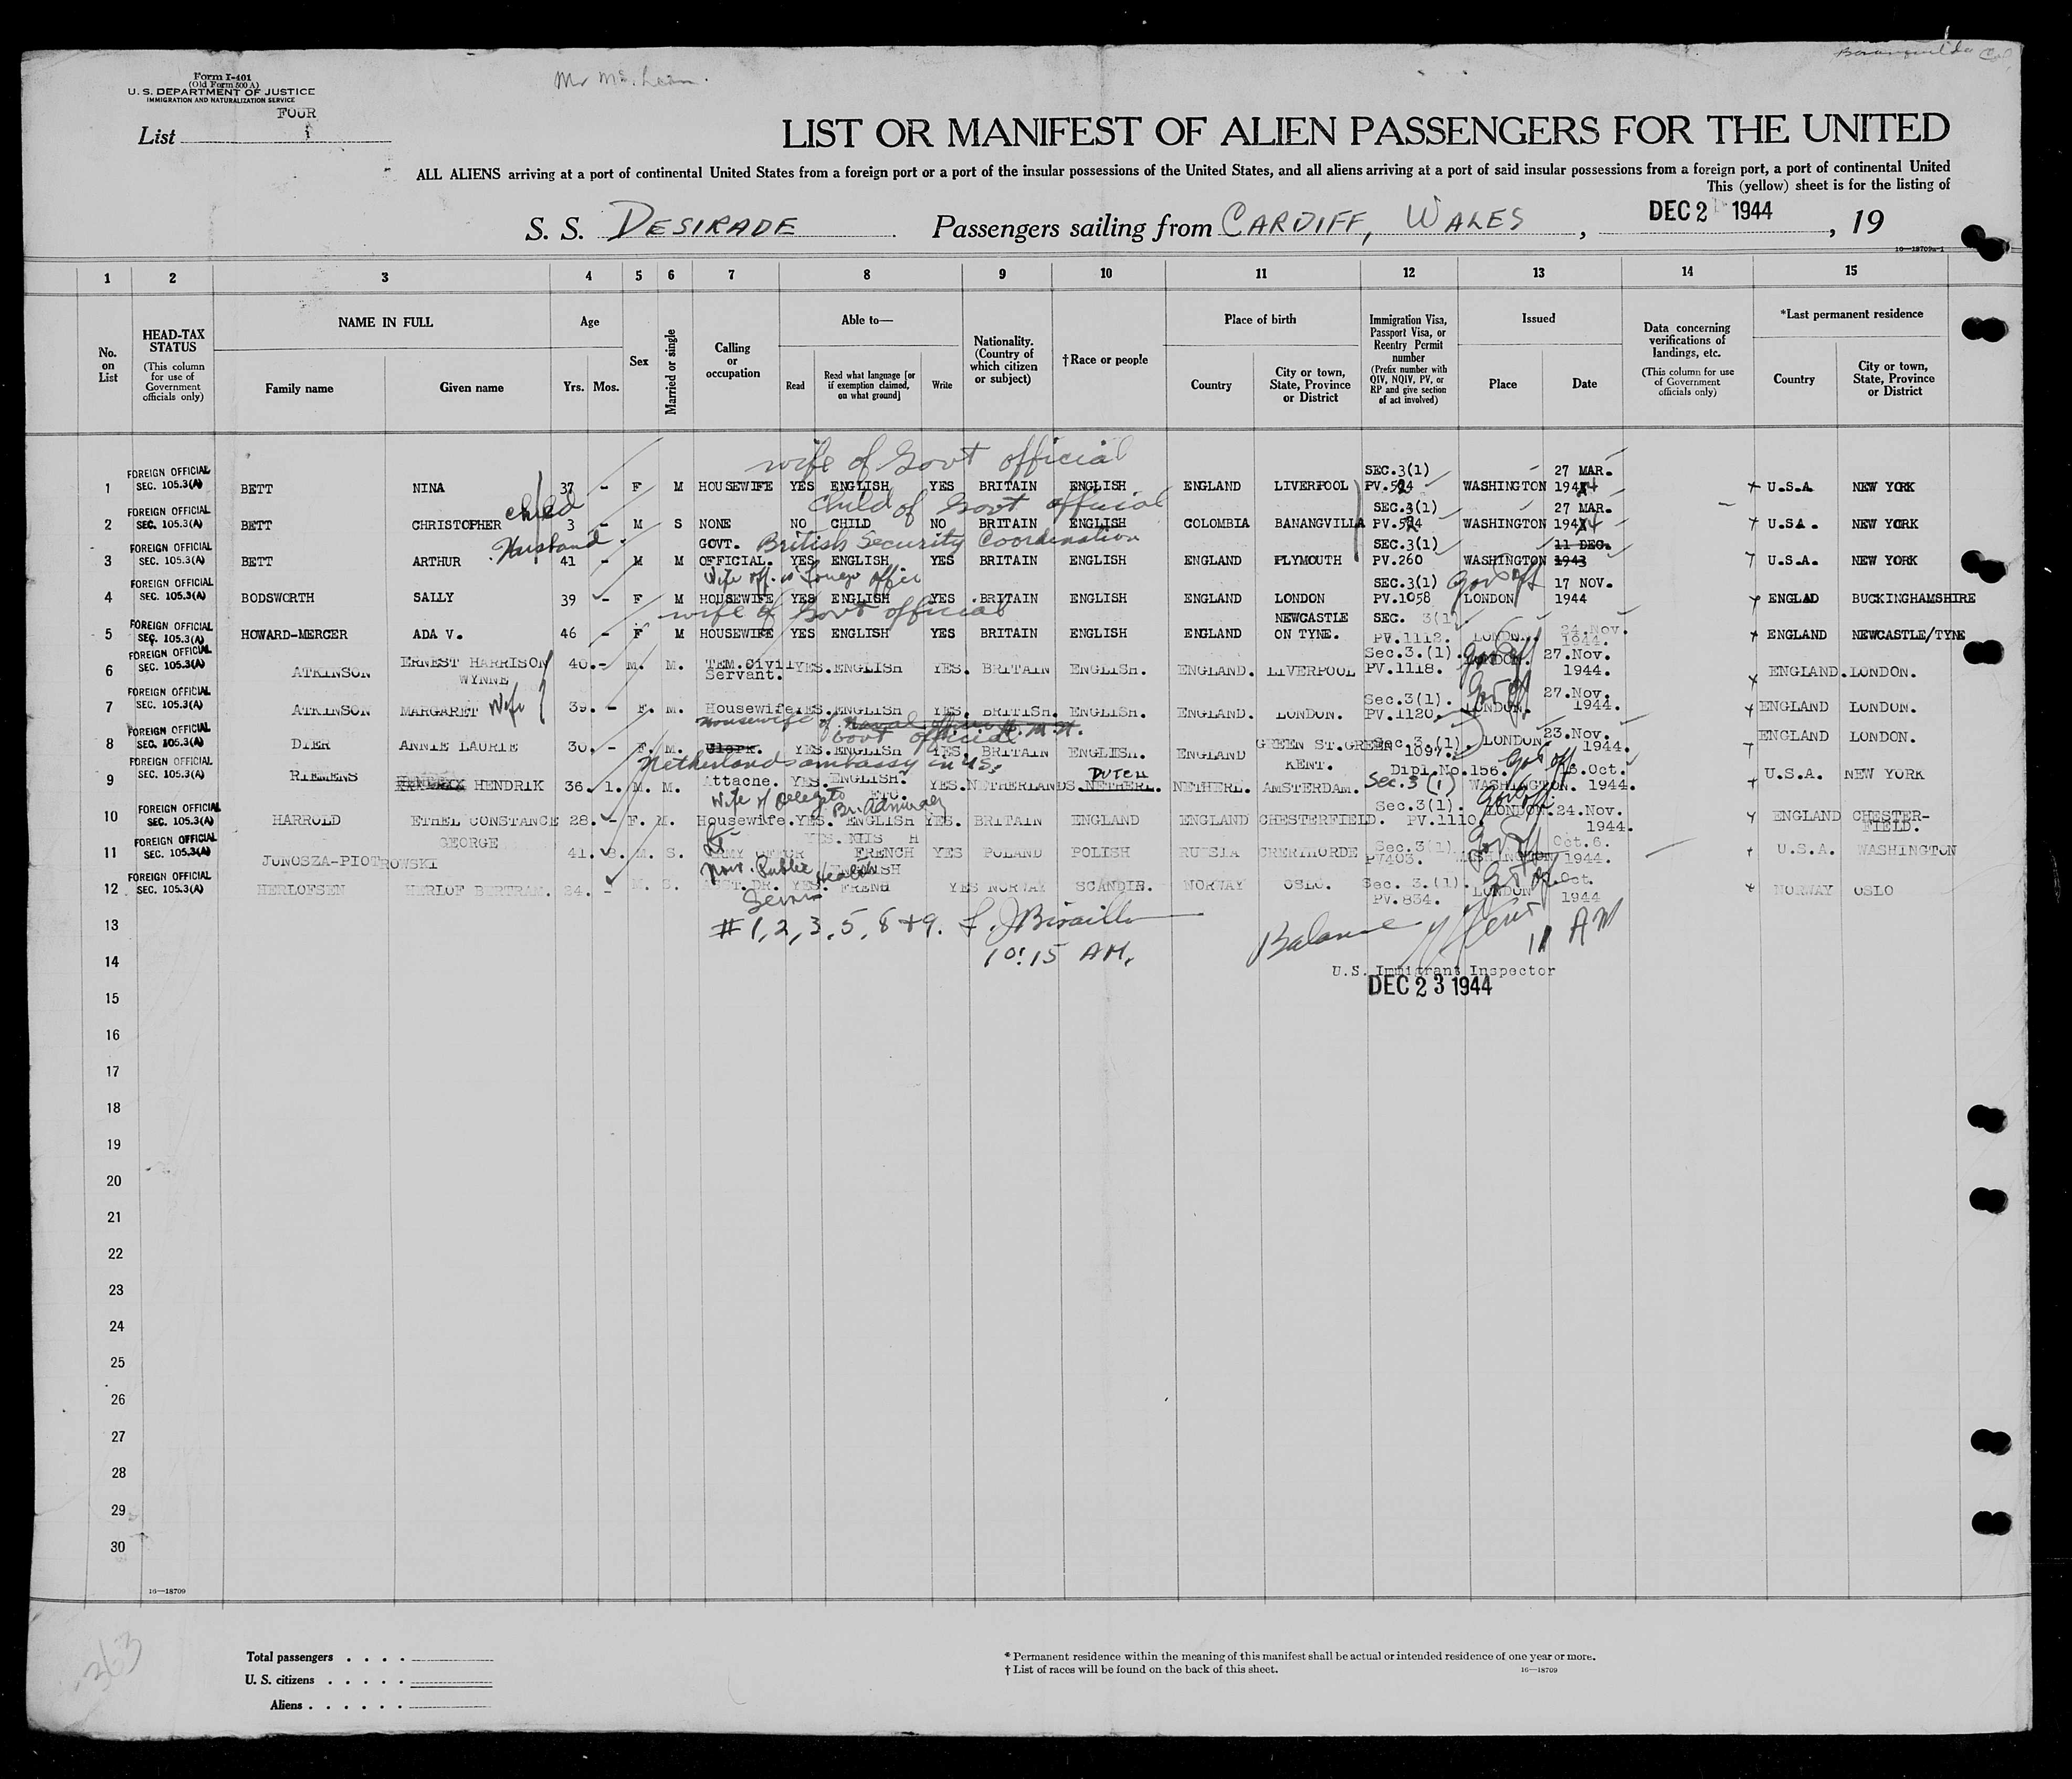 Form I-401
(Old Form 500 A)
U. S. DEPARTMENT OF JUSTICE
IMMIGRATION AND NATURALIZATION SERVICE
FOUR
List
LIST OR MANIFEST OF ALIEN PASSENGERS FOR THE UNITED
ALL ALIENS arriving at a port of continental United States from a foreign port or a port of the insular possessions of the United States, and all aliens arriving at a port of said insular possessions from a foreign port, a port of continental United
This (yellow) sheet is for the listing of
S. S. DESIRADE Passengers sailing from CARDIFF, WALES, DEC 2 1944, 19
16—18709a-1
1 2 3 4 5 6 7 8 9 10 11 12 13 14 15
No. on List
HEAD-TAX STATUS (This column for use of Government officials only)
NAME IN FULL
Family name Given name
Age
Yrs. Mos.
Sex
Married or single
Calling or occupation
Able to—
Read Read what language [or if exemption claimed, on what ground] Write
Nationality. (Country of which citizen or subject)
†Race or people
Place of birth
Country City or town, State, Province or District
Immigration Visa, Passport Visa, or Reentry Permit number (Prefix number with QIV, NQIV, PV, or RP and give section of act involved)
Issued
Place Date
Data concerning verifications of landings, etc. (This column for use of Government officials only)
*Last permanent residence
Country City or town, State, Province or District
wife of Govt official
1 FOREIGN OFFICIAL SEC. 105.3(A) BETT NINA 37 - F M HOUSEWIFE YES ENGLISH YES BRITAIN ENGLISH ENGLAND LIVERPOOL SEC.3(1) WASHINGTON 27 MAR. U.S.A NEW YORK
child Child of Govt official
2 FOREIGN OFFICIAL SEC. 105.3(A) BETT CHRISTOPHER 3 - M S NONE NO CHILD NO BRITAIN ENGLISH COLOMBIA BANANGVILLA SEC.3(1) WASHINGTON 27 MAR. U.S.A. NEW YORK
Husband British Security Coordination
3 FOREIGN OFFICIAL SEC. 105.3(A) BETT ARTHUR 41 - M M GOVT. OFFICIAL. YES ENGLISH YES BRITAIN ENGLISH ENGLAND PLYMOUTH SEC.3(1) PV.260 WASHINGTON 11 DEC. 1943 U.S.A. NEW YORK
4 FOREIGN OFFICIAL SEC. 105.3(A) BODSWORTH SALLY 39 - F M HOUSEWIFE YES ENGLISH YES BRITAIN ENGLISH ENGLAND LONDON SEC.3(1) PV.1058 LONDON 17 NOV. 1944 ENGLAD BUCKINGHAMSHIRE
wife of Govt official
5 FOREIGN OFFICIAL SEC. 105.3(A) HOWARD-MERCER ADA V. 46 - F M HOUSEWIFE YES ENGLISH YES BRITAIN ENGLISH ENGLAND NEWCASTLE ON TYNE. SEC. 3(1) PV.1112. LONDON. 24.Nov. 1944. ENGLAND NEWCASTLE/TYNE
6 FOREIGN OFFICIAL SEC. 105.3(A) ATKINSON ERNEST HARRISON WYNNE 40.- M. M. TEM.Civil Servant. YES.ENGLISH YES. BRITAIN ENGLISH. ENGLAND. LIVERPOOL Sec.3.(1). PV.1118. LONDON. 27.Nov. 1944. ENGLAND. LONDON.
7 FOREIGN OFFICIAL SEC. 105.3(A) ATKINSON MARGARET Wife 39. - F. M. Housewife YES.ENGLISH YES. BRITISH. ENGLISH. ENGLAND. LONDON. Sec.3(1). PV.1120. LONDON. 27.Nov. 1944. ENGLAND LONDON.
housewife of Govt official
8 FOREIGN OFFICIAL SEC. 105.3(A) DIER ANNIE LAURIE 30. - F. M. Clerk. YES.ENGLISH YES. BRITAIN ENGLISH. ENGLAND GREEN ST.GREEN KENT. Sec.3.(1). 1097. LONDON 23.Nov. 1944. ENGLAND LONDON.
Netherlands embassy in U.S.
9 FOREIGN OFFICIAL SEC. 105.3(A) RIEMENS HENDRIK 36. 1. M. M. Attache. YES. ENGLISH. ETC. YES. NETHERLANDS. NETHERL. DUTCH NETHERL. AMSTERDAM. Dipl.No.156. Sec.3 (1) WASHINGTON. Oct. 1944. U.S.A. NEW YORK
Wife of Delegate Br. Admiralty
10 FOREIGN OFFICIAL SEC. 105.3(A) HARROLD ETHEL CONSTANCE 28. - F. M. Housewife. YES. ENGLISH YES. BRITAIN ENGLAND ENGLAND CHESTERFIELD. Sec.3(1). PV.1110. LONDON. 24.Nov. 1944. ENGLAND CHESTER-FIELD.
11 FOREIGN OFFICIAL SEC. 105.3(A) JUNOSZA-PIOTROWSKI GEORGE 41. M. S. ARMY FRENCH YES POLAND POLISH RUSSIA Sec.3(1) PV403. WASHINGTON Oct.6. 1944. U.S.A. WASHINGTON
Nor. Public Health
12 FOREIGN OFFICIAL SEC. 105.3(A) HERLOFSEN HERLOF BERTRAM. M. S. DR. YES. YES NORWAY SCANDIN. NORWAY OSLO. Sec. 3.(1). PV.834. LONDON Oct. 1944 NORWAY OSLO
13 #1, 2, 3, 5, 8 + 9. Balance 11 AM
14 10:15 AM.
U.S. Immigrant Inspector
DEC 23 1944
15
16
17
18
19
20
21
22
23
24
25
26
27
28
29
30
16—18709
363
Total passengers
U. S. citizens
Aliens
* Permanent residence within the meaning of this manifest shall be actual or intended residence of one year or more.
† List of races will be found on the back of this sheet.
16—18709